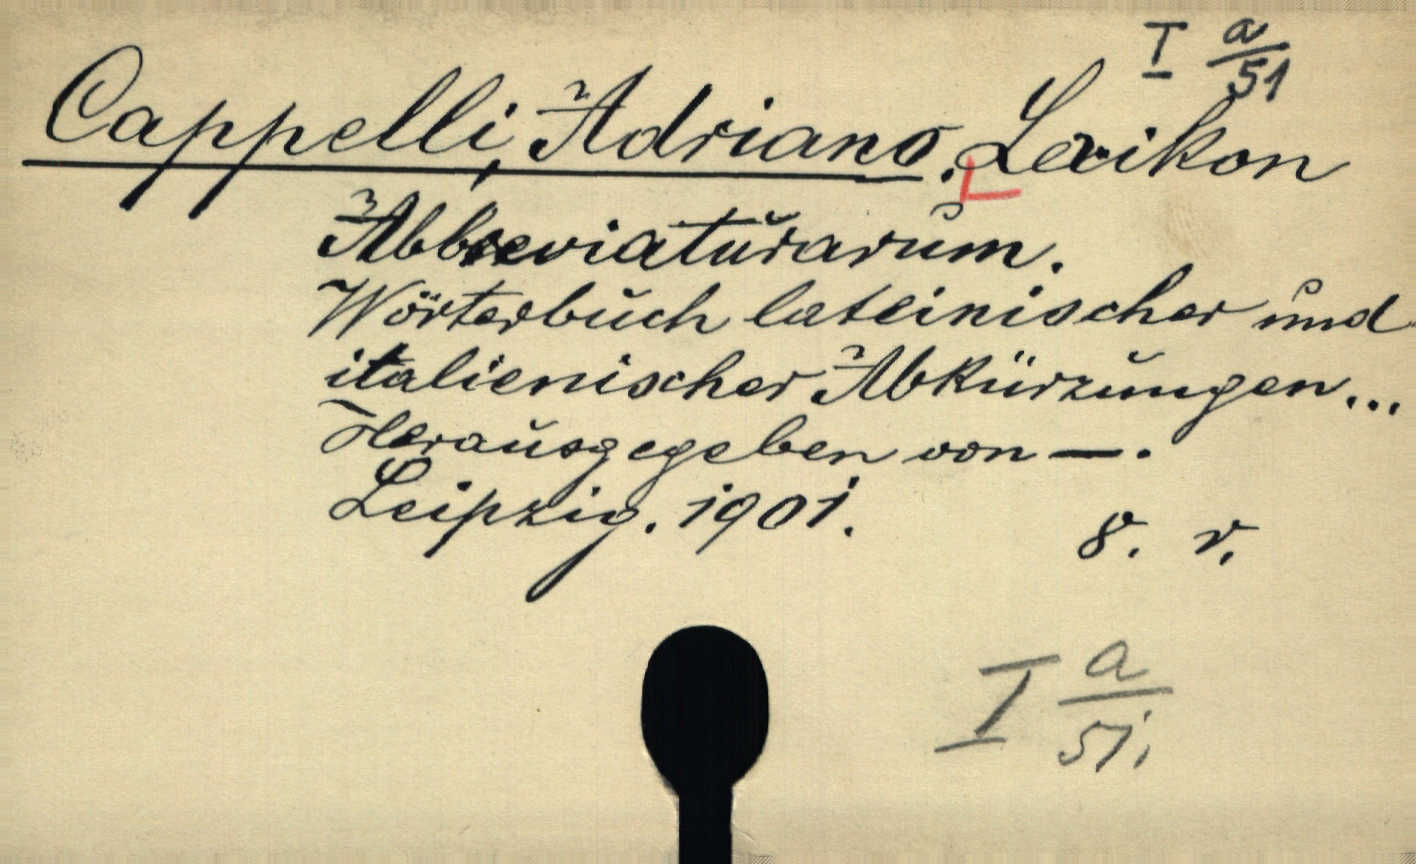 I a/51
Cappelli, Adriano. Lexikon
Abbreviaturarum.
Wörterbuch lateinischer und
italienischer Abkürzungen...
Herausgegeben von —.
Leipzig. 1901.
8. v.
I a/51.